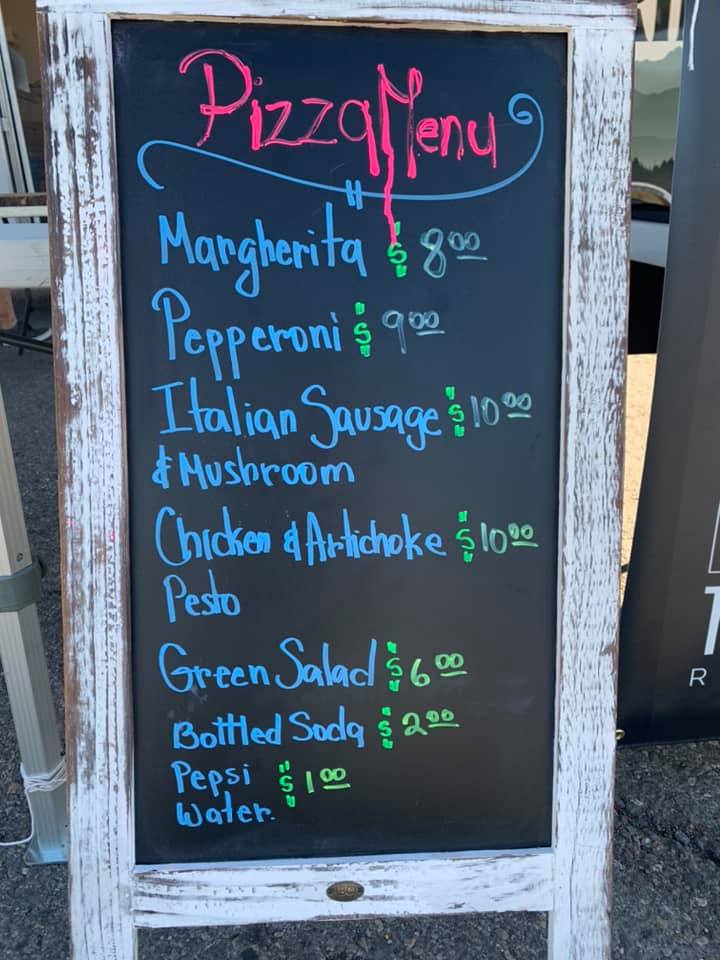 Pizza Menu
Margherita $ 8.00
Pepperoni $ 9.00
Italian Sausage $ 10.00
& Mushroom
Chicken & Artichoke $ 10.00
Pesto
Green Salad $ 6.00
Bottled Soda $ 2.00
Pepsi $ 1.00
Water.